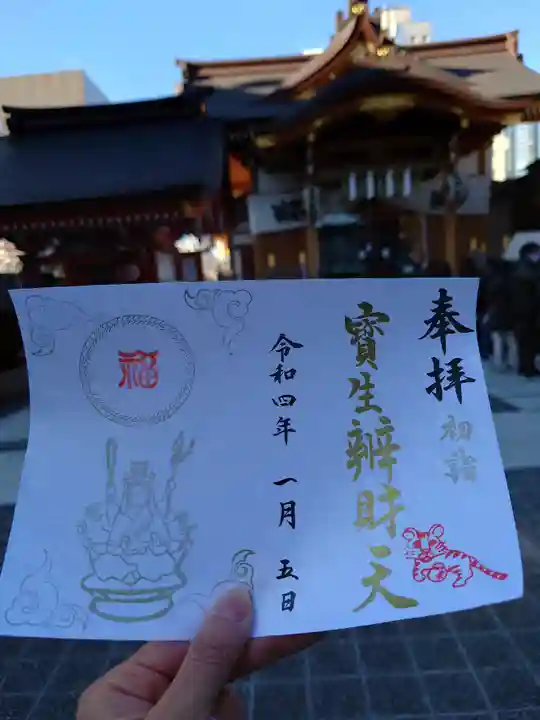 奉拝
初詣
寳生辨財天
令和四年 一月 五日
福